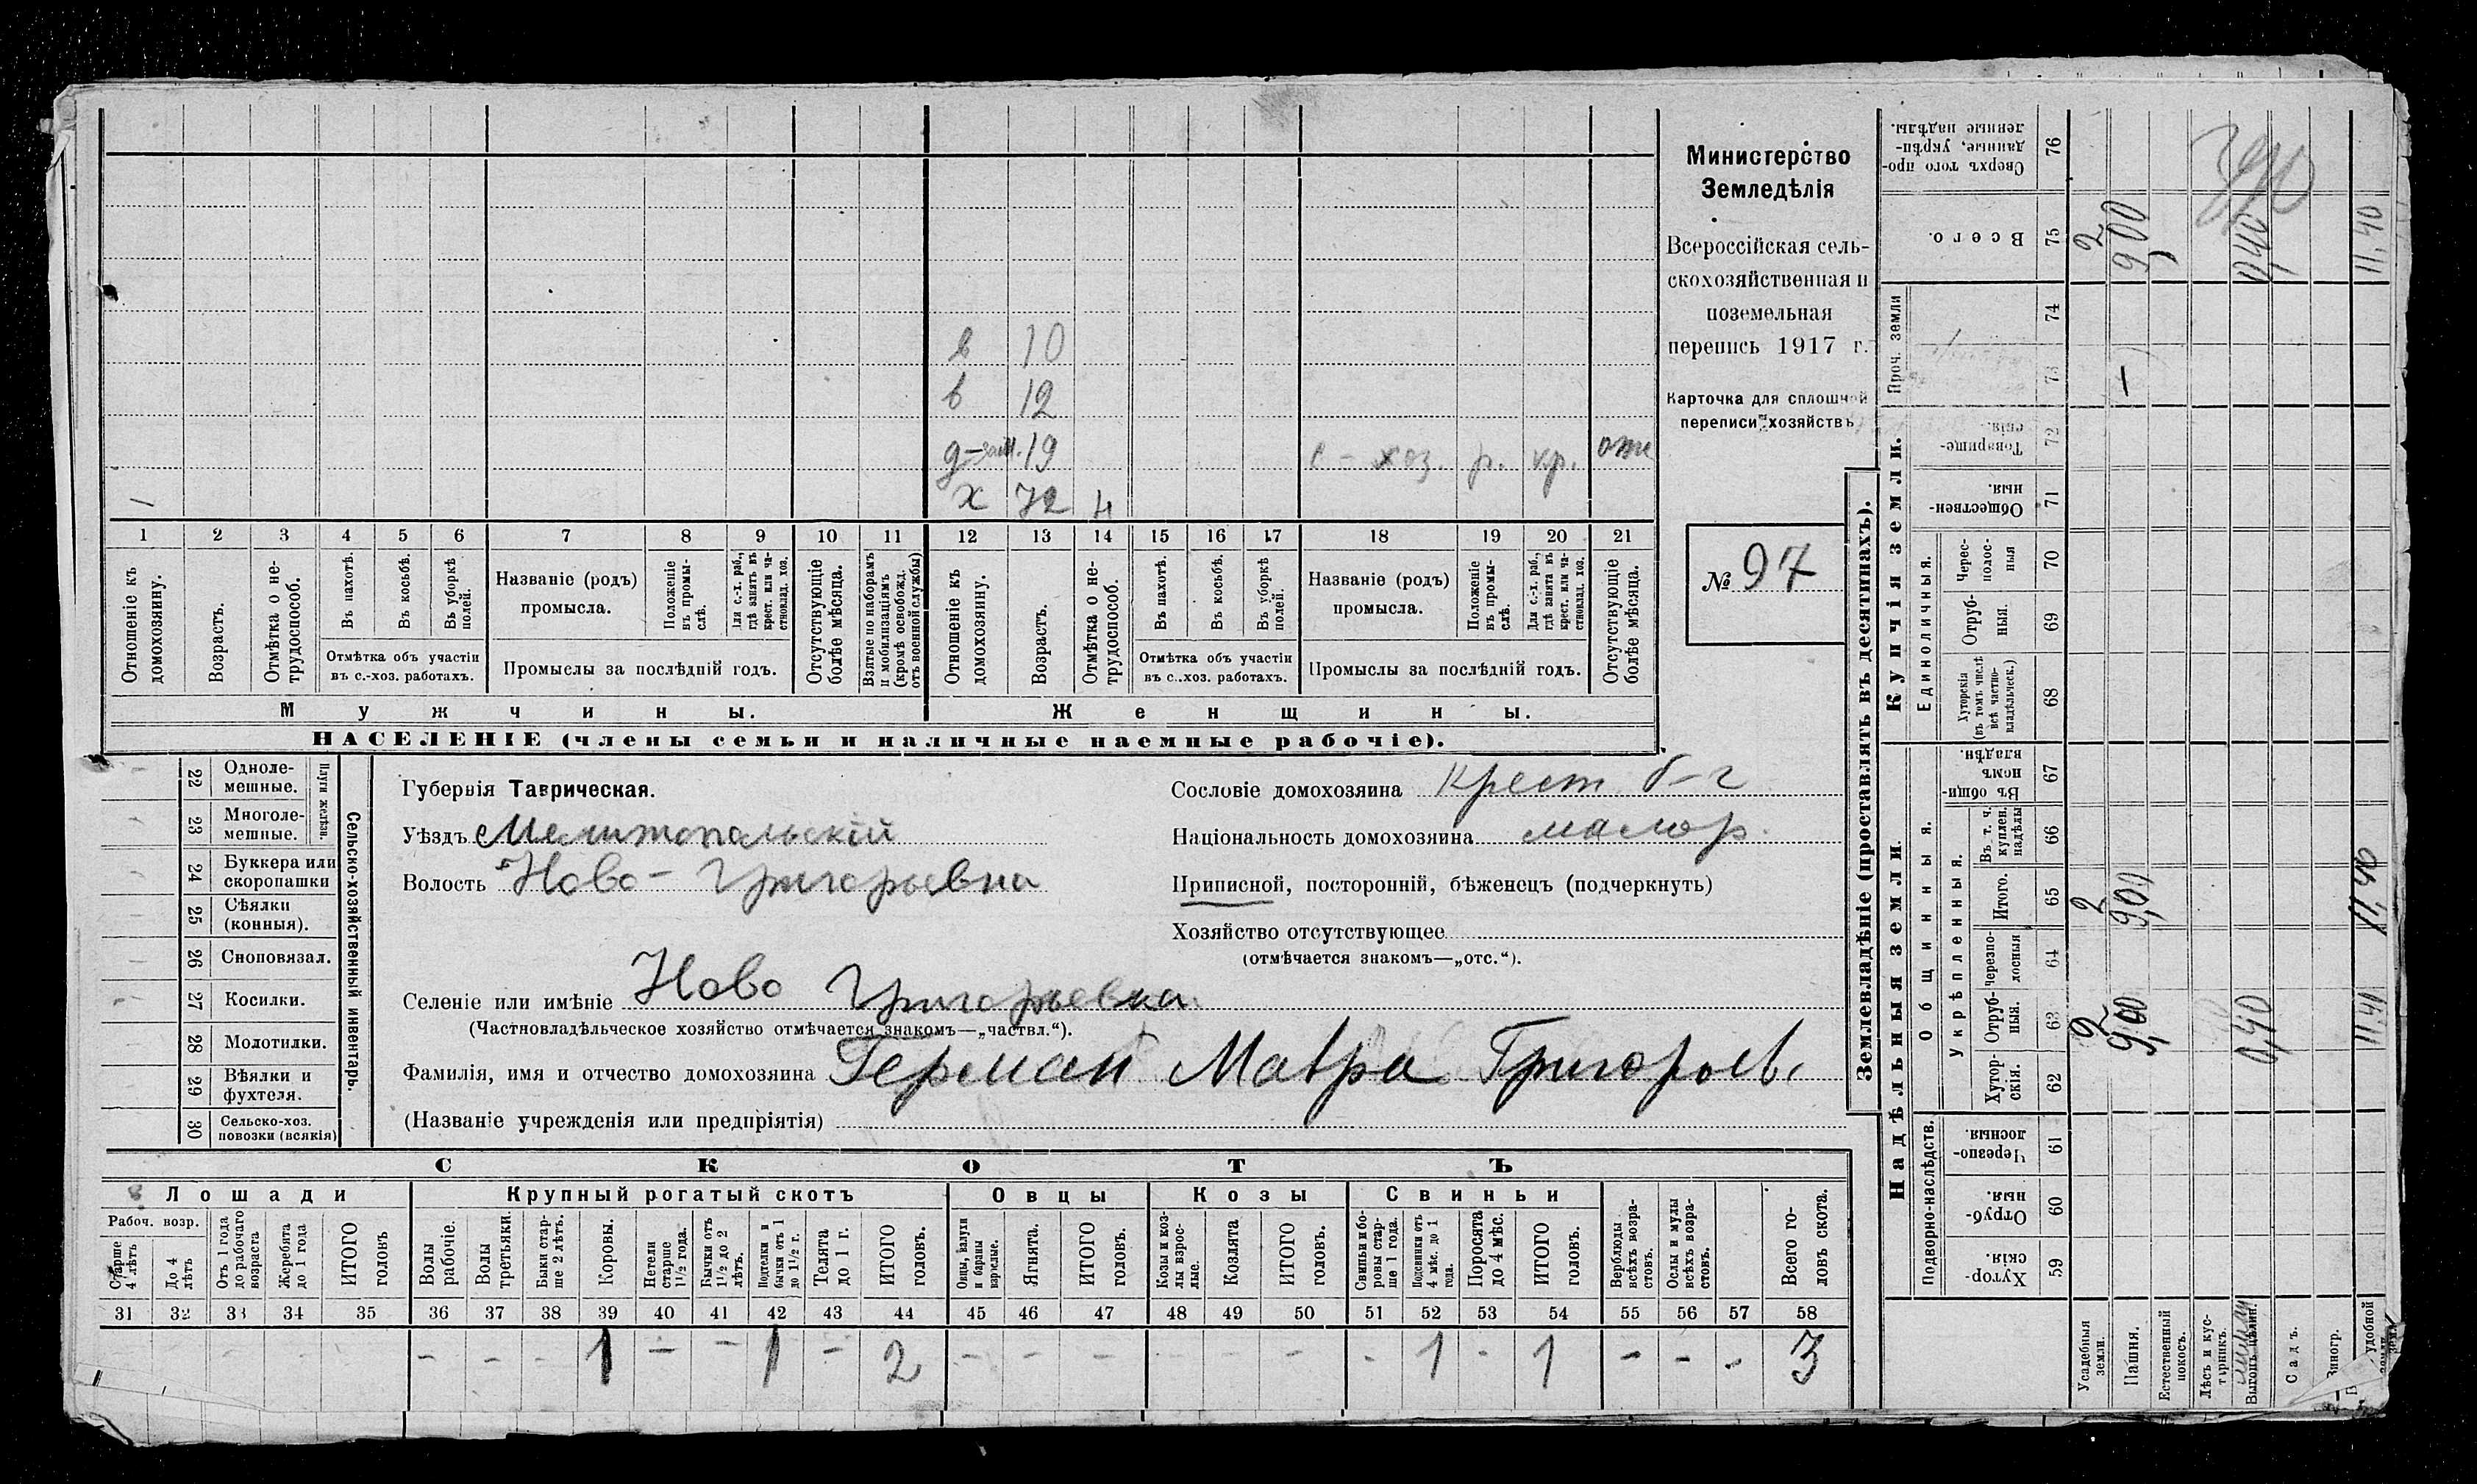 в 10
в 12
д-зам. 19 с-хоз. р. кр. отс
х 72 н
1 2 3 4 5 6 7 8 9 10 11 12 13 14 15 16 17 18 19 20 21
Отношеніе къ домохозяину.
Возрастъ.
Отмѣтка о не-трудоспособ.
Въ пахотѣ.
Въ косьбѣ.
Въ уборкѣ полей.
Отмѣтка объ участіи
въ с.-хоз. работахъ.
Названіе (родъ)
промысла.
Положеніе въ промы-слѣ.
Для с.-х. раб., гдѣ занятъ въ крест. или ча-стновлад. хоз.
Промыслы за послѣдній годъ.
Отсутствующіе болѣе мѣсяца.
Взятые по наборамъ и мобилизаціямъ (кромѣ освобожд. отъ военной службы)
Отношеніе къ домохозяину.
Возрастъ.
Отмѣтка о не-трудоспособ.
Въ пахотѣ.
Въ косьбѣ.
Въ уборкѣ полей.
Отмѣтка объ участіи
въ с.-хоз. работахъ.
Названіе (родъ)
промысла.
Положеніе въ промы-слѣ.
Для с.-х. раб., гдѣ занята въ крест. или ча-стновлад. хоз.
Промыслы за послѣдній годъ.
Отсутствующіе болѣе мѣсяца.
Мужчины. Женщины.
НАСЕЛЕНІЕ (члены семьи и наличные наемные рабочіе).
Министерство
Земледѣлія
Всероссійская сель-
скохозяйственная и
поземельная
перепись 1917 г.
Карточка для сплошной
переписи хозяйствъ
№ 97
22 Одноле-мешные.
23 Многоле-мешные.
Плуги желѣзн.
24 Буккера или скоропашки
25 Сѣялки (конныя).
26 Сноповязал.
27 Косилки.
28 Молотилки.
29 Вѣялки и фухтеля.
30 Сельско-хоз. повозки (всякія)
Сельско-хозяйственный инвентарь.
Губернія Таврическая.
Уѣздъ Мелитопольскій
Волость Ново-Григорьевка
Селеніе или имѣніе Ново Григорьевка
(Частновладѣльческое хозяйство отмѣчается знакомъ—„частвл.“).
Фамилія, имя и отчество домохозяина Герман Мавра Григорьев.
(Названіе учрежденія или предпріятія)
Сословіе домохозяина крест б-г
Національность домохозяина малор.
Приписной, посторонній, бѣженецъ (подчеркнуть)
Хозяйство отсутствующее
(отмѣчается знакомъ—„отс.“).
СКОТЪ
Лошади Крупный рогатый скотъ Овцы Козы Свиньи
Рабоч. возр.
Старше 4 лѣтъ
До 4 лѣтъ
Отъ 1 года до рабочаго возраста
Жеребята до 1 года
ИТОГО головъ
Волы рабочіе.
Волы третьяки.
Быки стар-ше 2 лѣтъ.
Коровы.
Нетели старше 1½ года.
Бычки отъ 1½ до 2 лѣтъ.
Подтелки и бычки отъ 1 до 1½ г.
Телята до 1 г.
ИТОГО головъ.
Овцы, валухи и бараны взрослые.
Ягнята.
ИТОГО головъ.
Козы и коз-лы взрос-лые.
Козлята
ИТОГО головъ.
Свиньи бо-ровы стар-ше 1 года.
Подсвинки отъ 4 мѣс. до 1 года.
Поросята до 4 мѣс.
ИТОГО головъ.
Верблюды всѣхъ возра-стовъ.
Ослы и мулы всѣхъ возра-стовъ.
Всего го-ловъ скота.
31 32 33 34 35 36 37 38 39 40 41 42 43 44 45 46 47 48 49 50 51 52 53 54 55 56 57 58
- - - 1 - - 1 - 2 - - - - - - - 1 - 1 - - - 3
Землевладѣніе (проставлять въ десятинахъ).
Надѣльныя земли. Купчія земли. Проч. земли
Подворно-наслѣдств.
Общинныя.
Укрѣпленныя.
Единоличныя.
Хутор-скія. 59
Отруб-ныя. 60
Черезпо-лосныя. 61
Хутор-скія. 62
Отруб-ныя. 63
Черезпо-лосныя 64
Итого. 65
Въ т. ч. куплен. надѣлы 66
Въ общи-номъ владѣн. 67
Хуторскія (въ томъ числѣ всѣ частно-владѣльческ.) 68
Отруб-ныя. 69
Черес-полос-ныя 70
Обществен-ныя. 71
Товарище-скія. 72
73 74
Всего. 75
Сверхъ того про-данные, укрѣп-ленные надѣлы. 76
Усадебныя земли. 2 2 2
Пашня. 9,00 9,00 - 9,00
Естественный покосъ.
Лѣсъ и кус-тарникъ.
Выгонъ цѣлин. 0,40 0,40
Садъ.
Виногр.
удобной 11.40 11,40 11,40